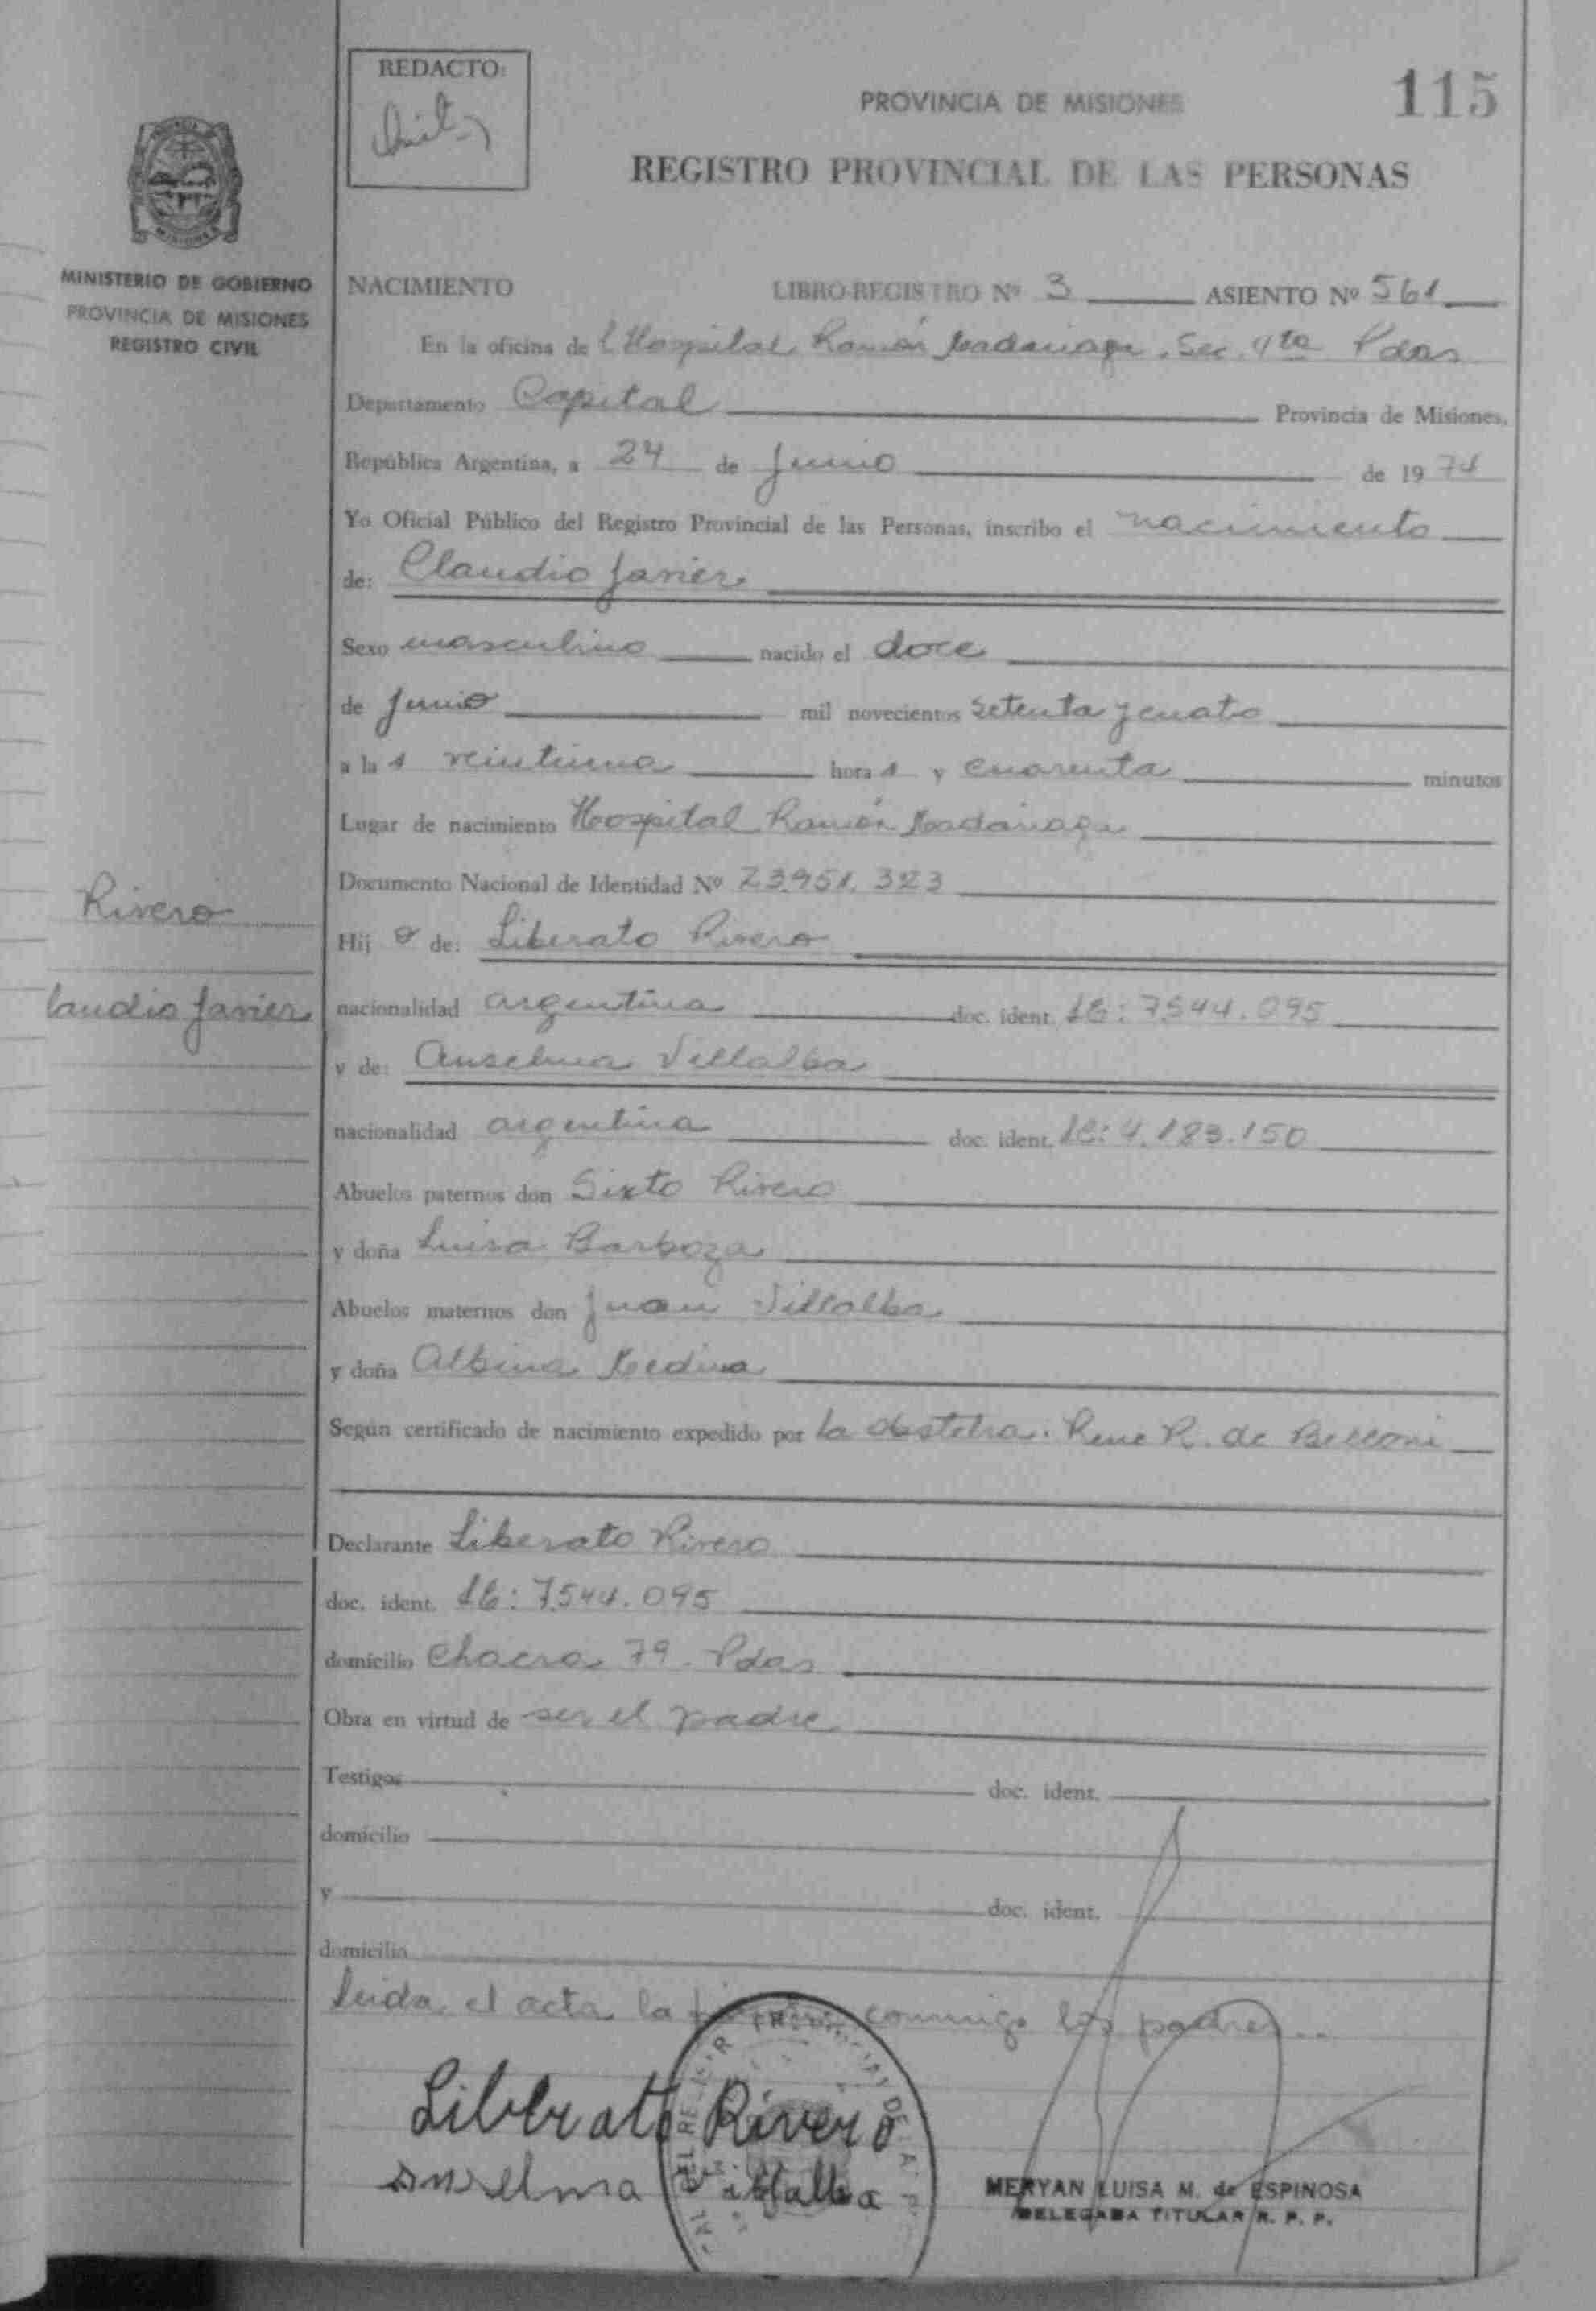 REDACTO:
115
PROVINCIA DE MISIONES
REGISTRO PROVINCIAL DE LAS PERSONAS
MINISTERIO DE GOBIERNO
PROVINCIA DE MISIONES
REGISTRO CIVIL
NACIMIENTO LIBRO-REGISTRO Nº 3 ASIENTO Nº 561
En la oficina de l Hospital Ramón Madariaga. Sec. 4ta Pdas
Departamento Capital Provincia de Misiones,
República Argentina, a 24 de Junio de 1974
Yo Oficial Público del Registro Provincial de las Personas, inscribo el nacimiento
de: Claudio Javier
Sexo masculino nacido el doce
de Junio mil novecientos setenta y cuatro
a las veintiuna horas y cuarenta minutos
Lugar de nacimiento Hospital Ramón Madariaga
Documento Nacional de Identidad Nº 23.951.323
Rivero
Hijo de: Liberato Rivero
laudio Javier
nacionalidad argentina doc. ident. LE: 7.544.095
y de: Anselma Villalba
nacionalidad argentina doc. ident. LC: 4.183.150
Abuelos paternos don Sixto Rivero
y doña Luisa Barboza
Abuelos maternos don Juan Villalba
y doña Albina Medina
Según certificado de nacimiento expedido por la obstetra. Rene R. de Belloni
Declarante Liberato Rivero
doc. ident. LE: 7.544.095
domicilio Chacra 79 - Pdas
Obra en virtud de ser el padre
Testigos doc. ident.
domicilio
y doc. ident.
domicilio
Leida el acta la firman conmigo los padres..
Liberato Rivero
Anselma Villalba
MERYAN LUISA M. de ESPINOSA
DELEGADA TITULAR R. P. P.